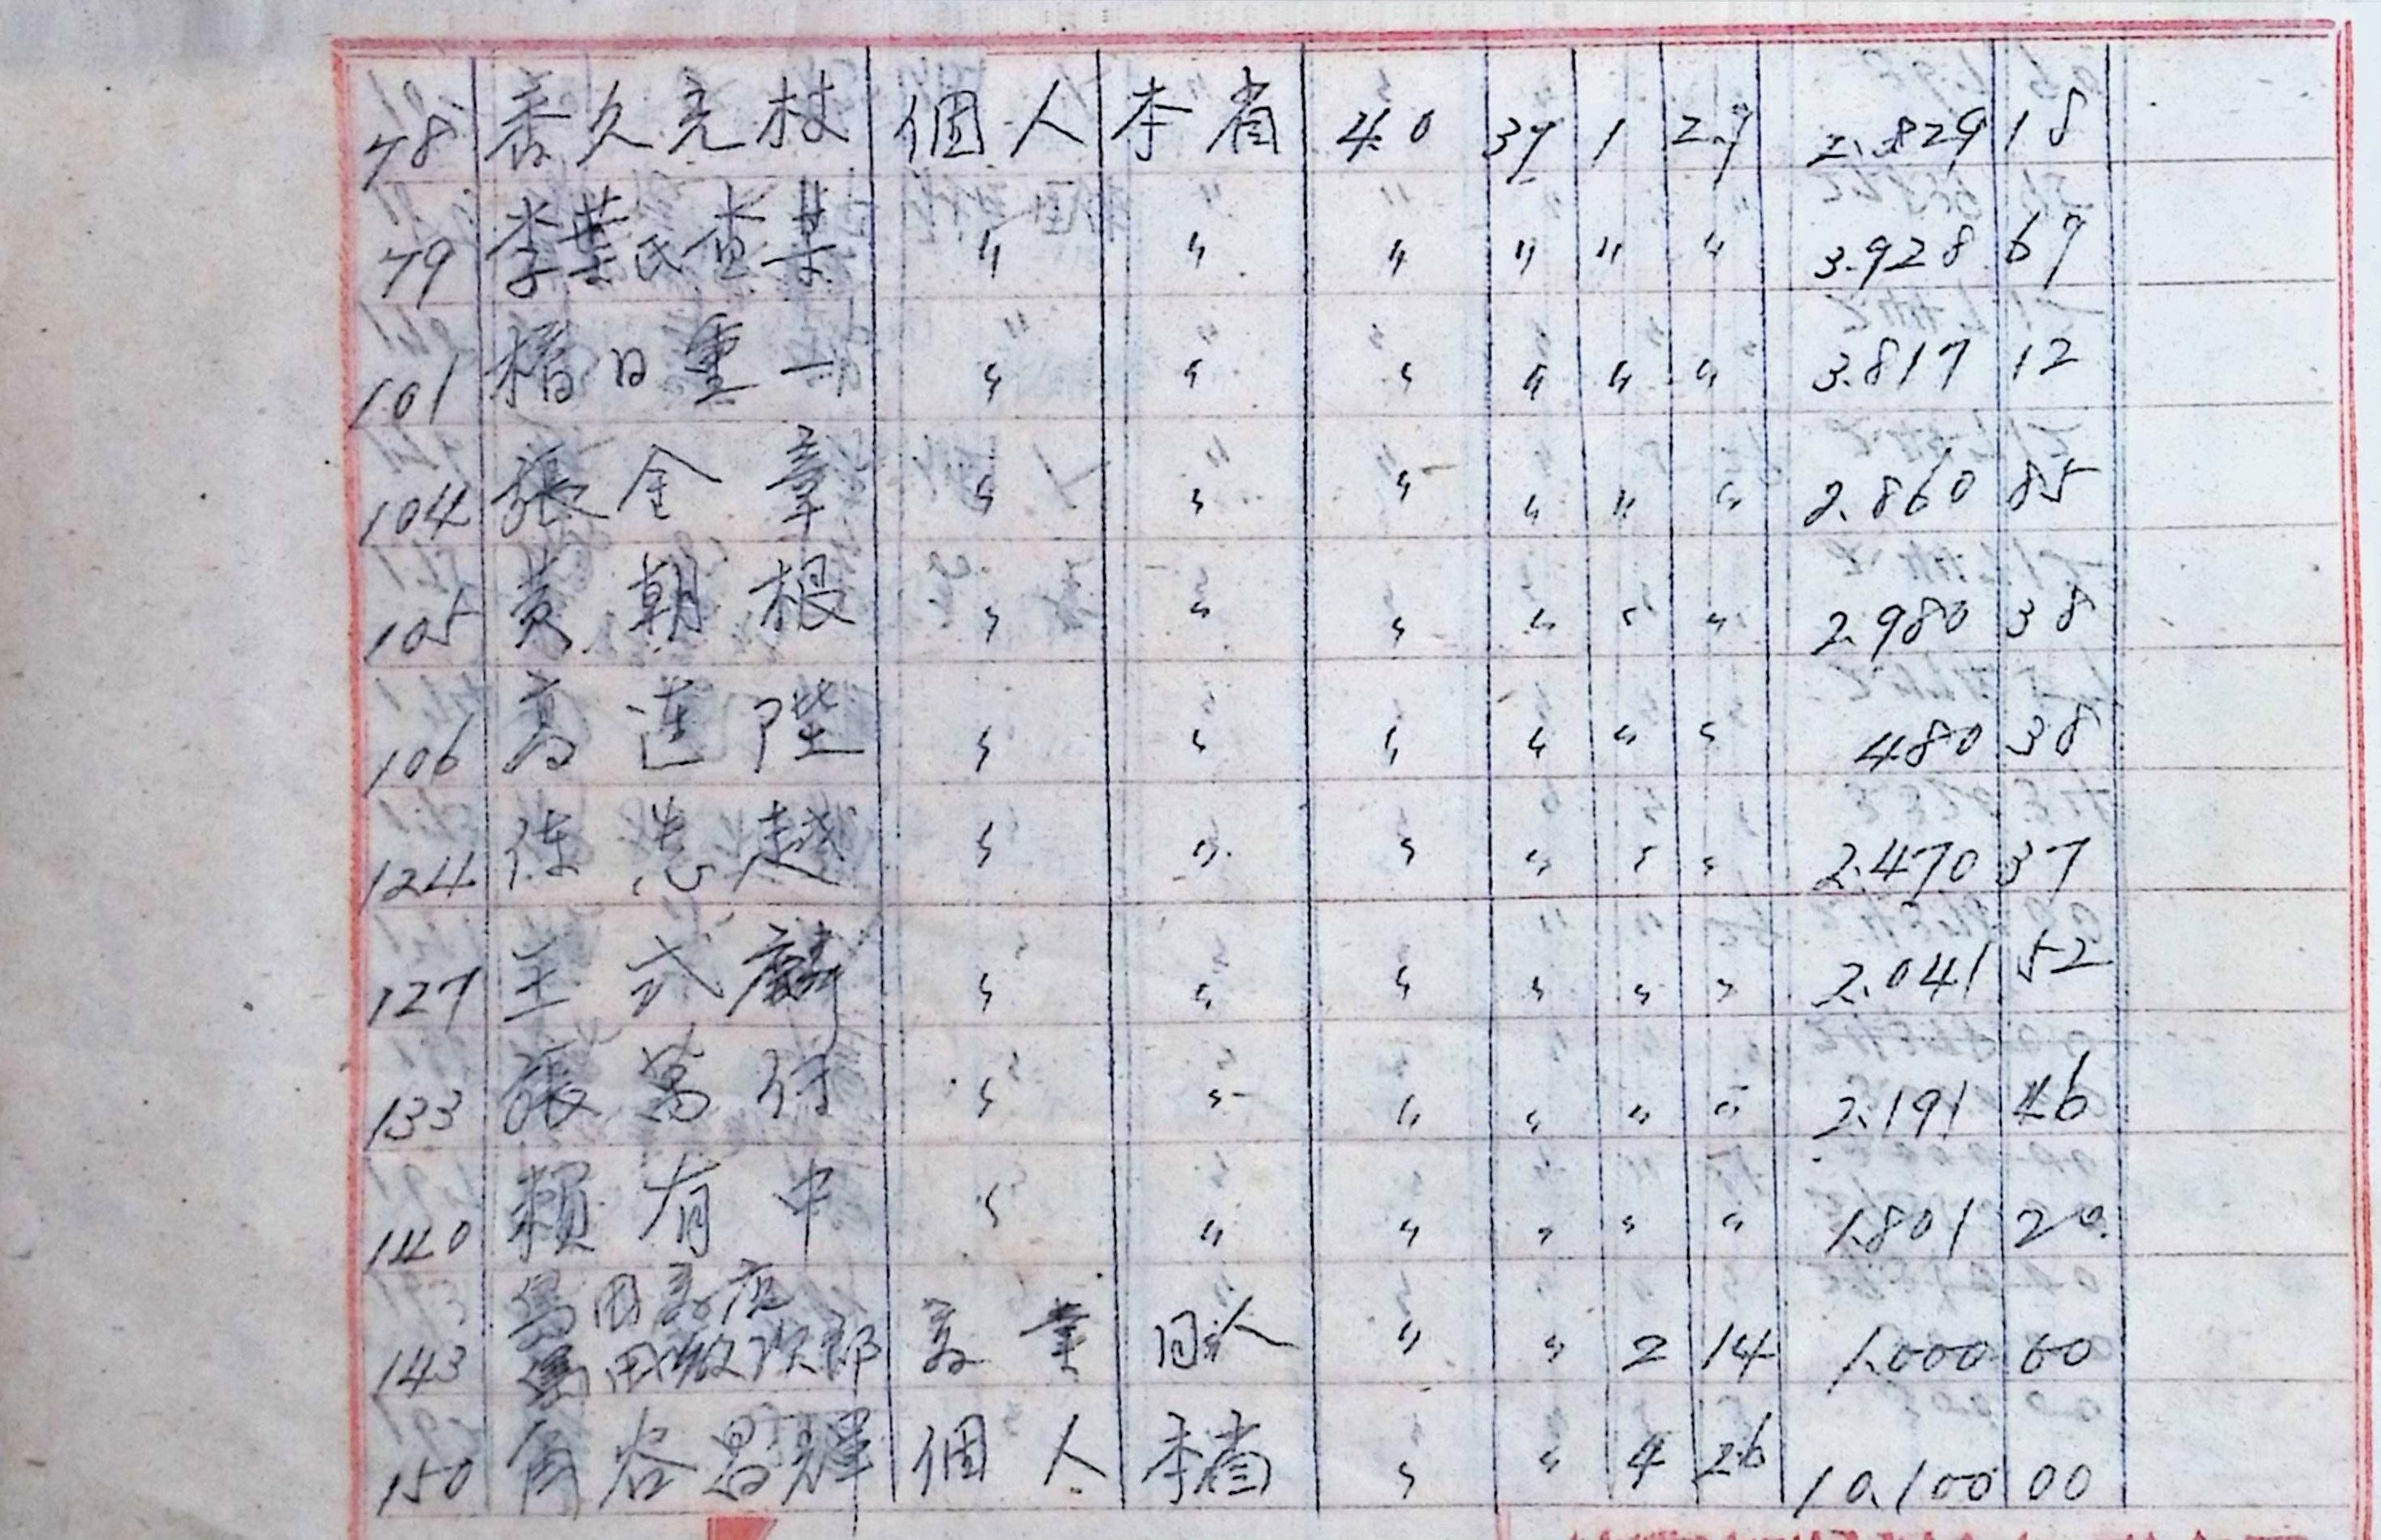 78 泰久克杖 個人 本省 40 37 1 27 2.829 18
79 李葉氏查某 〃 〃 〃 〃 〃 〃 3.928 67
101 重一 〃 〃 〃 〃 〃 〃 3.817 12
104 張全章 〃 〃 〃 〃 〃 〃 2.860 85
105 黄朝根 〃 〃 〃 〃 〃 〃 2.980 38
106 高連陞 〃 〃 〃 〃 〃 〃 480 38
124 越 〃 〃 〃 〃 〃 〃 2.470 37
127 王式麟 〃 〃 〃 〃 〃 〃 2.041 52
133 張萬得 〃 〃 〃 〃 〃 〃 2.191 46
140 賴有中 〃 〃 〃 〃 〃 〃 1.801 20
143 〃 〃 2 14 1.000 00
150 昌輝 個人 本省 〃 〃 4 26 10.100 00